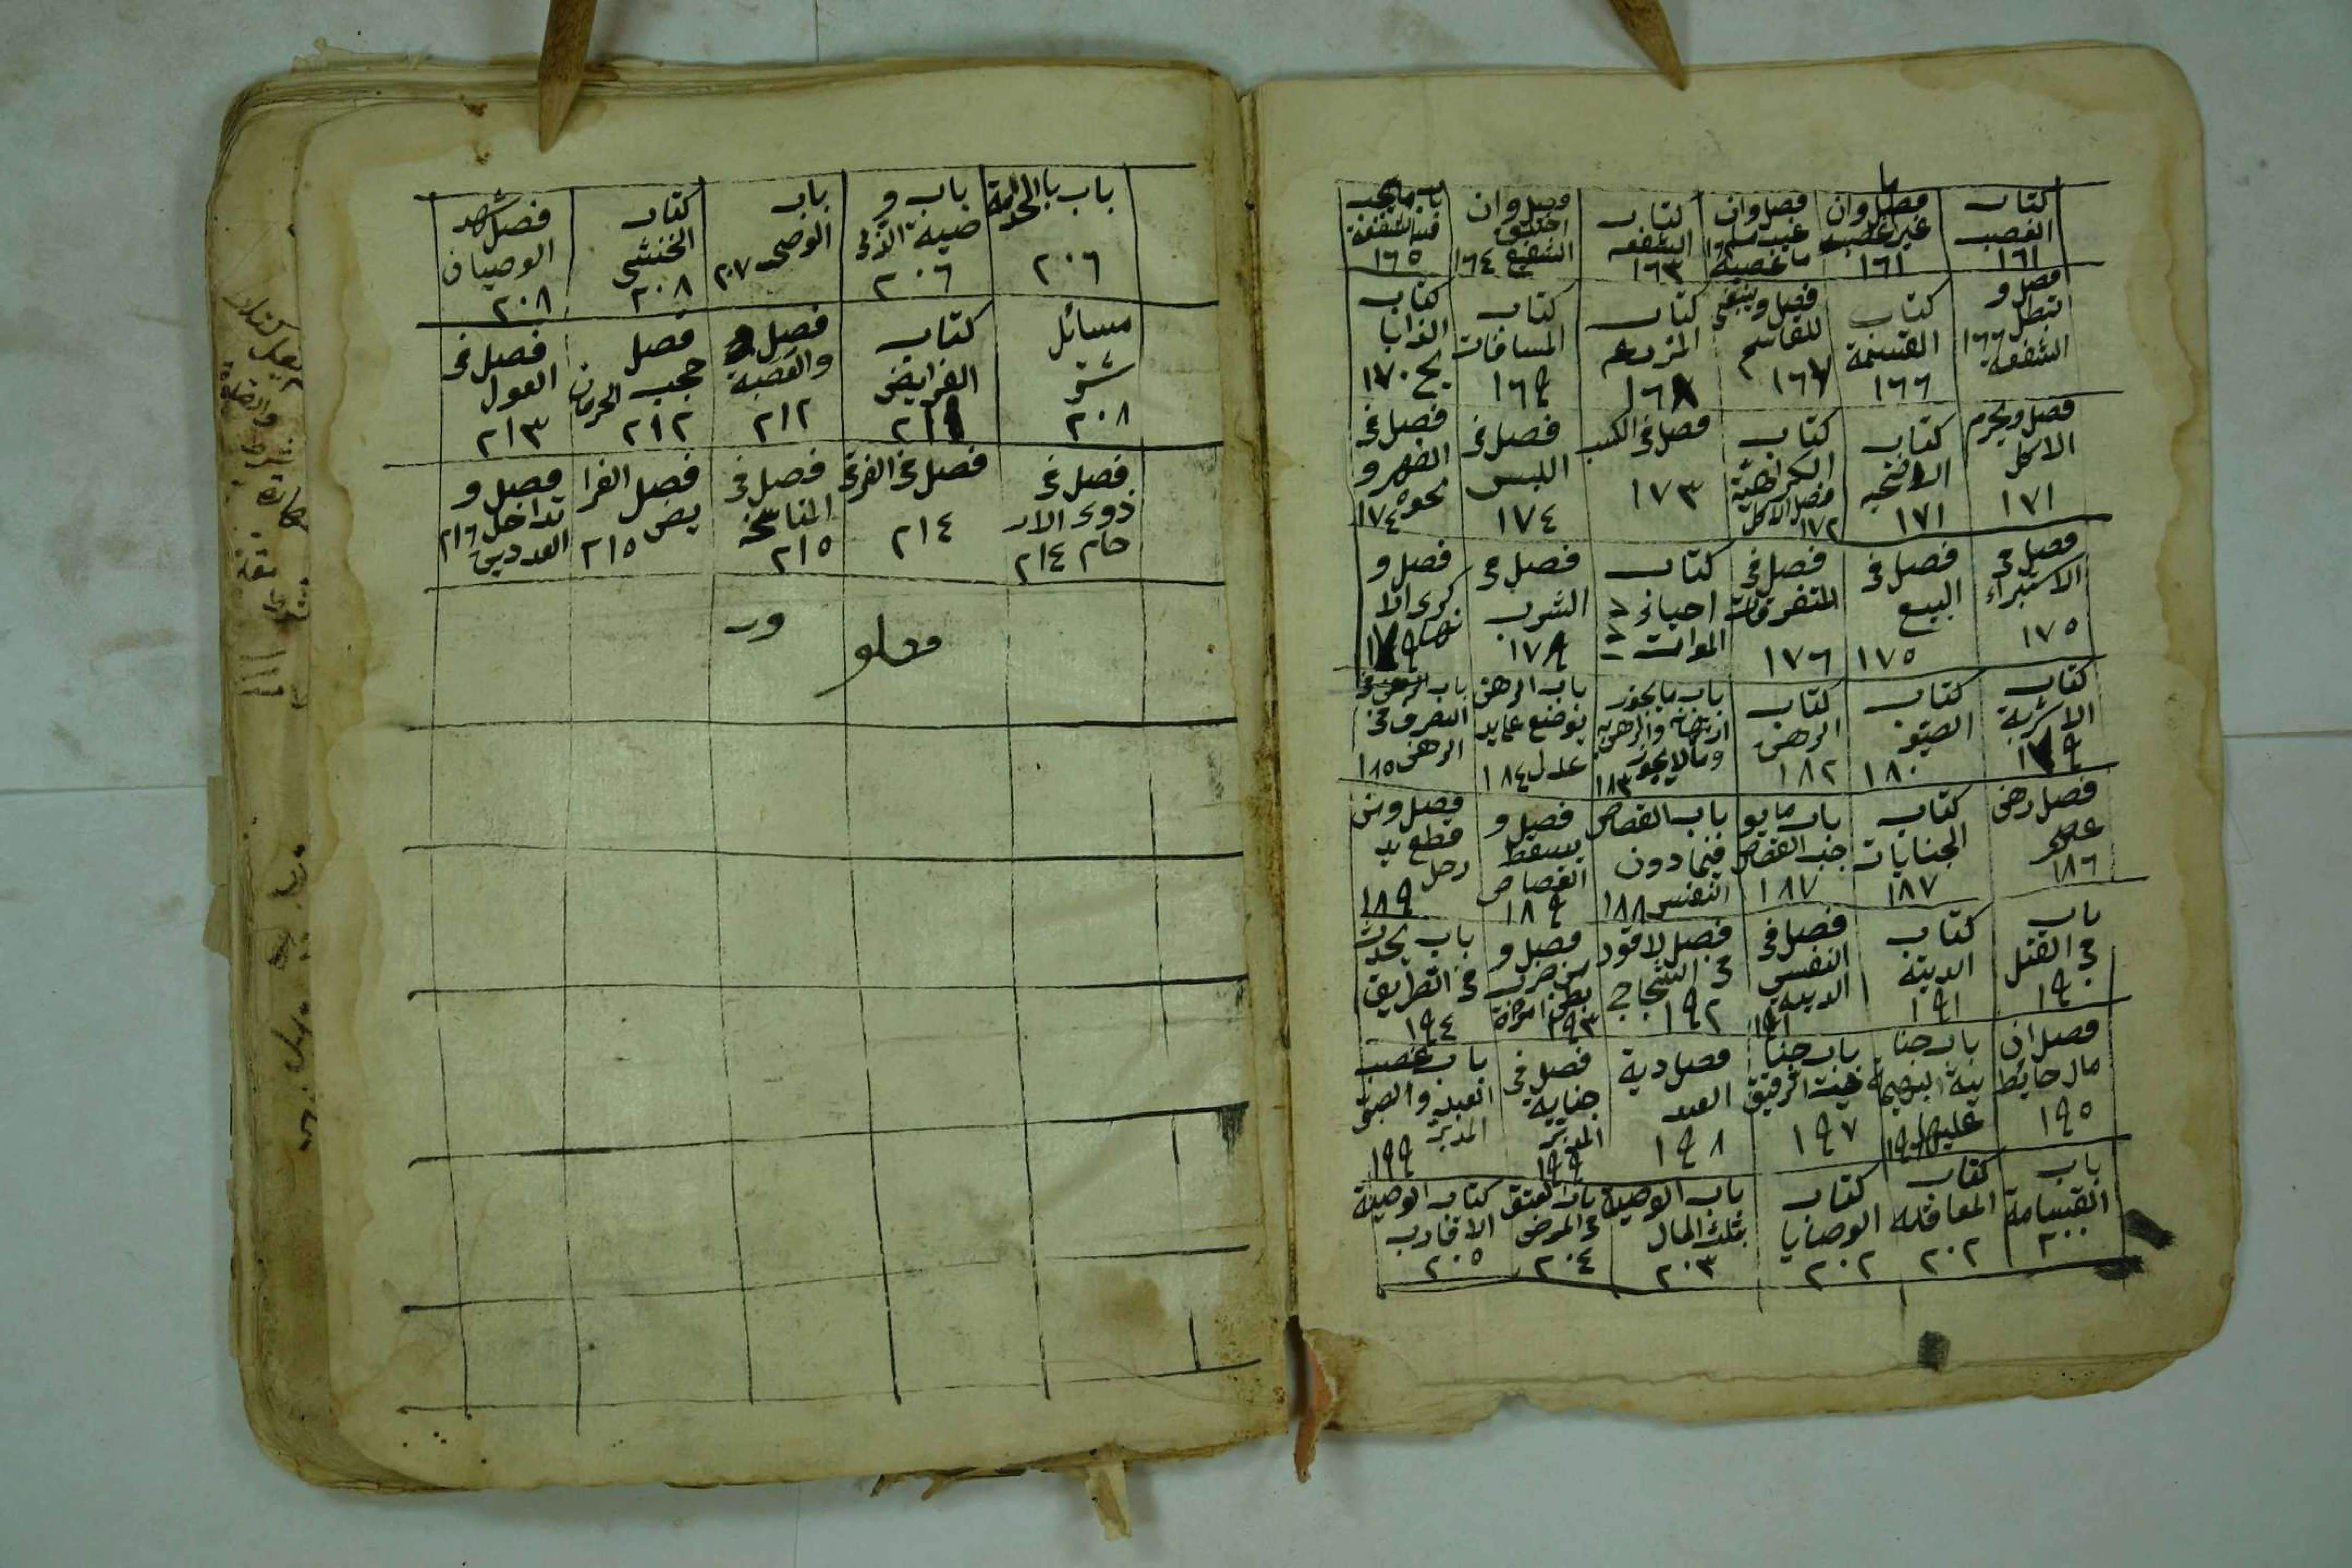 كتاب الغصب ١٦١
فصل وان غير ما غصبه ١٦١
فصل وان غيب ما غصبه ١٦٢
كتاب الشفعه ١٦٣
فصل وان اختلف الشفيع ١٦٤
باب ما يجب فيه الشفعة ١٦٥
فصل و تبطل الشفعة ١٦٦
كتاب القسمة ١٦٦
فصل وينبغى للقاسم ١٦٧
كتاب المزرعه ١٦٨
كتاب المساقات ١٦٩
كتاب الذبايح ١٧٠
فصل ويحرم الاكل ١٧١
كتاب الاضحيه ١٧١
كتاب الكراهية فصل الاكل ١٧٢
فصل فى الكسب ١٧٣
فصل فى اللبس ١٧٤
فصل فى النظر و نحوه ١٧٤
فصل فى الاستبراء ١٧٥
فصل فى البيع ١٧٥
فصل فى المتفرقات ١٧٦
كتاب احياء الموات
فصل فى الشرب ١٧٨
فصل و كرى الا نهار ١٧٩
كتاب الاشربة ١٧٩
كتاب الصيد ١٨٠
كتاب الرهن ١٨٢
باب ما يجوز ارتهانه والرهن به وما لا يجوز ١٨٣
باب الرهن يوضع على يد عدل ١٨٤
باب التصرف فى الرهن ١٨٥
فصل رهن عصير ١٨٦
كتاب الجنايات ١٨٧
باب ما يو جب القصاص ١٨٧
باب القصاص فيما دون النفس ١٨٨
فصل و يسقط القصاص ١٨٩
فصل ومن قطع يد رجل ١٨٩
باب فى القتل ١٩٠
كتاب الدية ١٩١
فصل فى النفس الدية ١٩١
فصل لا قود فى الشجاج ١٩٢
فصل و من ضرب بطن امراة ١٩٣
باب يحدث فى الطريق ١٩٤
فصل ان مال حائط ١٩٥
باب جنا ية البهيمة عليها ١٩٦
باب جنا ية الرقيق ١٩٧
فصل دية العبد ١٩٨
فصل فى جناية المدبر ١٩٩
باب غصب العبد والصبى المدبر ١٩٩
باب القسامة ٢٠٠
كتاب المعاقله ٢٠٢
كتاب الوصايا ٢٠٢
باب الوصية بثلث المال ٢٠٣
باب العتق فى المرض ٢٠٤
كتاب الوصية الاقارب ٢٠٥
باب بالخدمة ٢٠٦
باب و صية الذمى ٢٠٦
باب الوصى ٢٠٧
كتاب الخنثى ٢٠٨
فصل شهد الوصيان ٢٠٨
مسائل شتى ٢٠٨
كتاب الفرايض ٢١١
فصل والعصبة ٢١٢
فصل حجب الحرمان ٢١٢
فصل فى العول ٢١٣
فصل فى ذوى الار حام ٢١٤
فصل فى الغرقى ٢١٤
فصل فى المناسخه ٢١٥
فصل الفرا يض ٢١٥
فصل و تداخل العددين ٢١٦